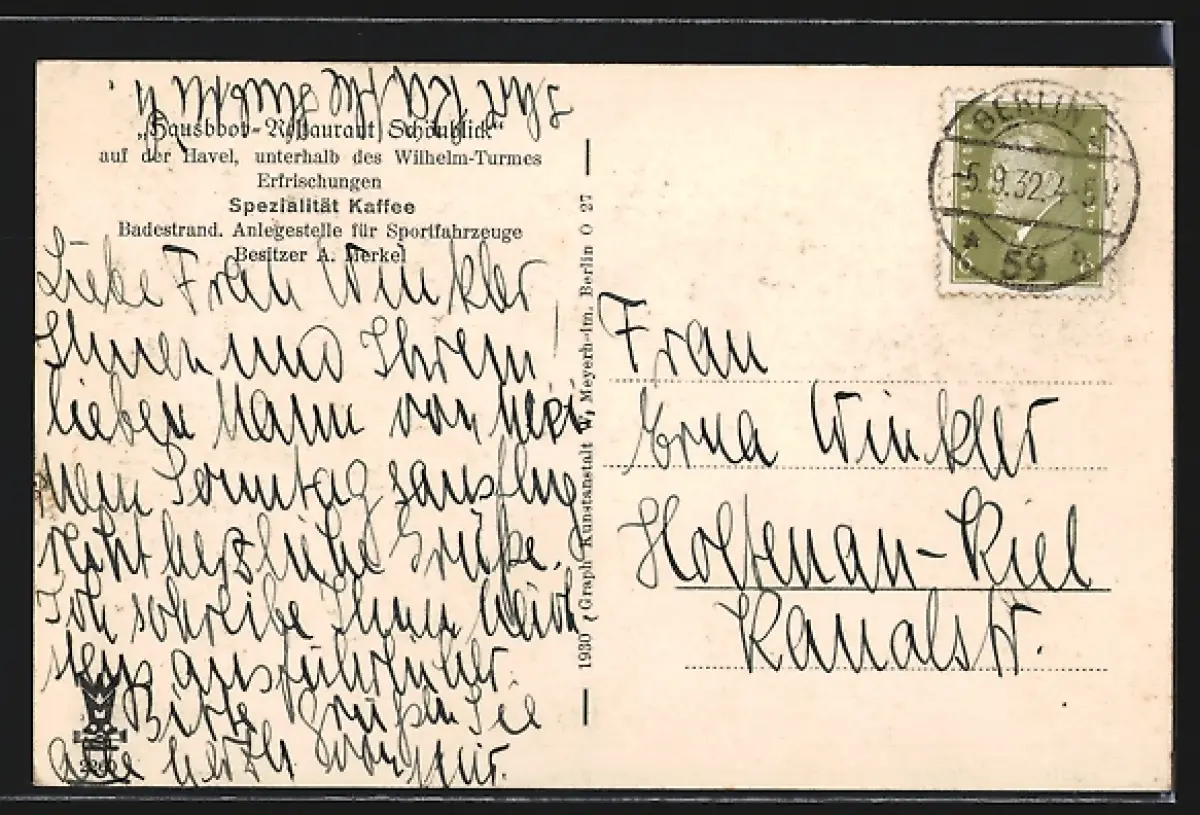 „Hausboot-Restaurant Schönblick“
auf der Havel, unterhalb des Wilhelm-Turmes
Erfrischungen
Spezialität Kaffee
Badestrand. Anlegestelle für Sportfahrzeuge
Besitzer A. Merkel
Liebe Frau Winkler
Ihnen und Ihrem
lieben Mann von mei
nem Sonntagsausflug
recht herzliche Grüße.
Ich schreibe Ihnen näch
stens ausführlicher.
Bitte grüßen Sie
alle herzl. von mir.
Ihre Käthe
2260
1930 Graph. Kunstanstalt W. Meyerheim, Berlin O 27
BERLIN
-5.9.32.4-5V
* 59
Frau
Erna Winkler
Holtenau-Kiel
Kanalstr.